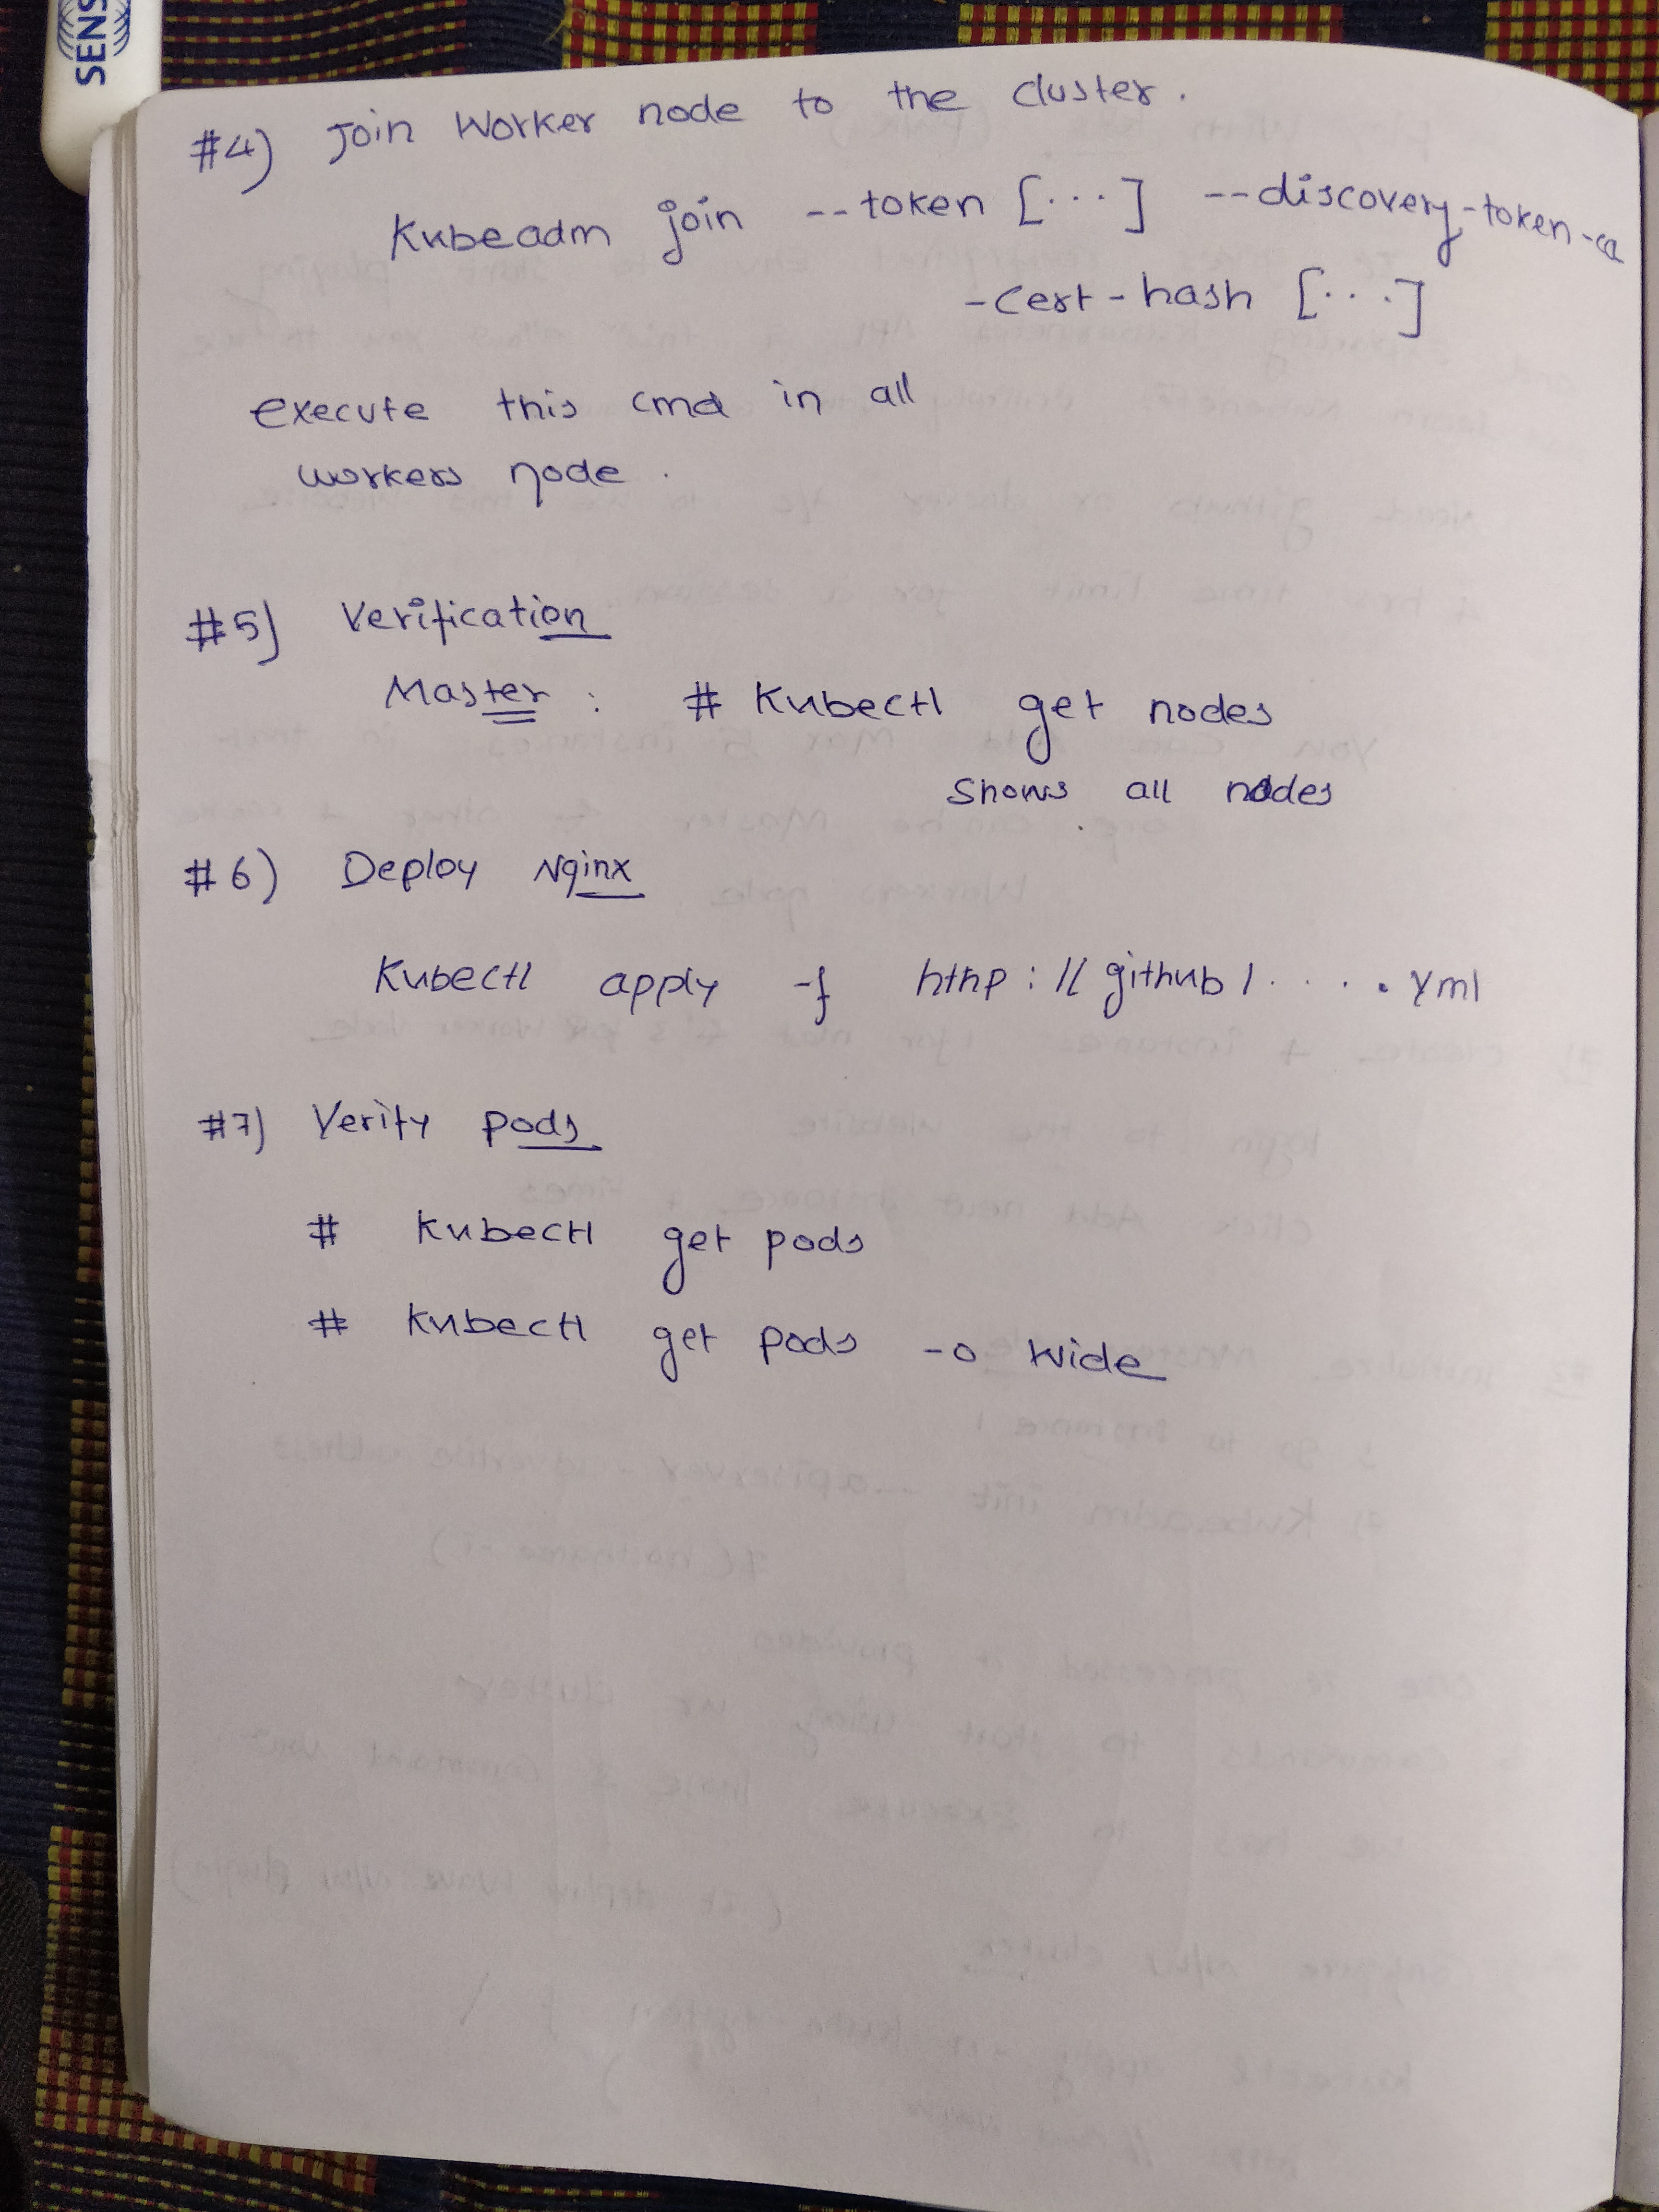 SENS
#4) Join Worker node to the cluster.
Kubeadm join --token [...] --discovery-token-ca
-cert-hash [...]
execute this cmd in all
workers node.
#5) Verification
Master : # Kubectl get nodes
Shows all nodes
#6) Deploy Nginx
Kubectl apply -f http://github/.....yml
#7) Verify pods
# kubectl get pods
# kubectl get pods -o wide